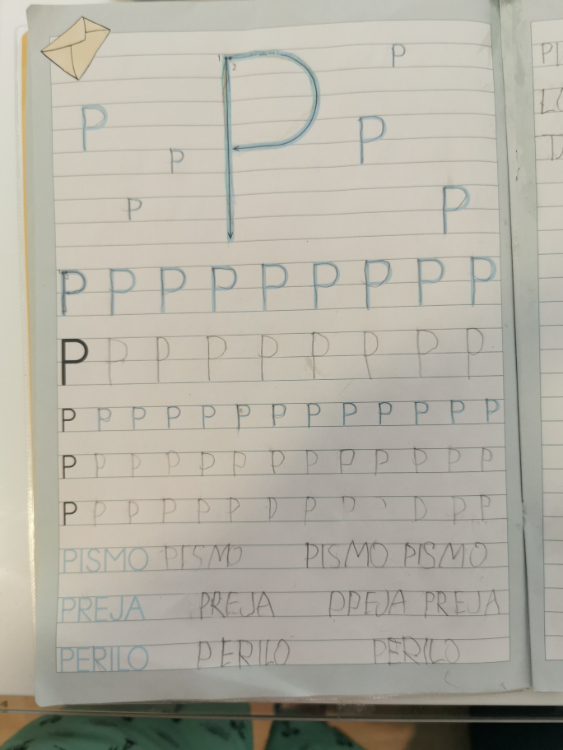 1 2
P P
P P
P
P P
P P P P P P P P P
P P P P P P P P P
P P P P P P P P P P P P P
P P P P P P P P P P P P P
P P P P P P D P D D P P
PISMO PISMO PISMO PISMO
PREJA PREJA DPEJA PREJA
PERILO PERILO PERILO
PI